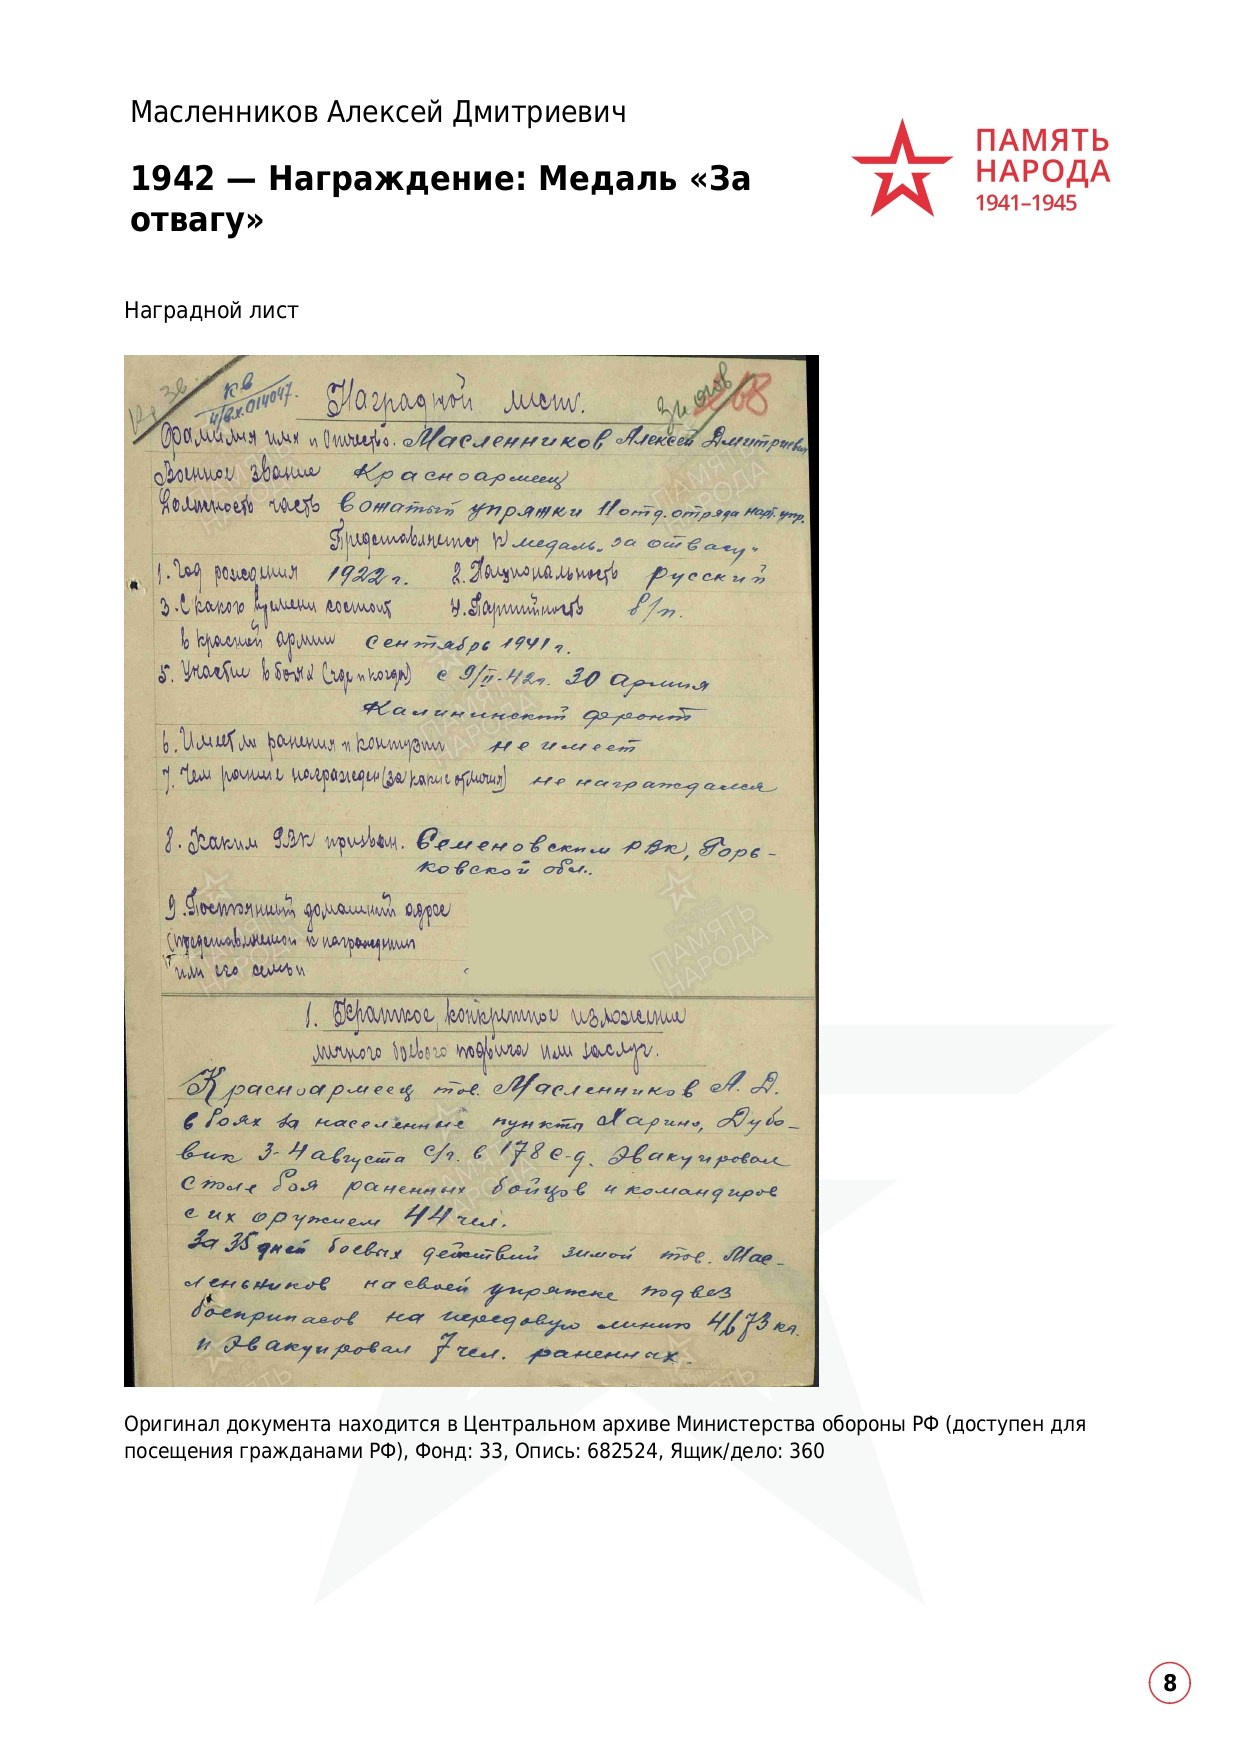 Масленников Алексей Дмитриевич
1942 — Награждение: Медаль «За
отвагу»
ПАМЯТЬ
НАРОДА
1941–1945
Наградной лист
КВ
4/вх.014047.
Наградной лист.
68
Фамилия имя и Отчество. Масленников Алексей Дмитриевич
Военное звание Красноармеец
Должность часть вожатый упряжки 11 отд. отряда нарт. упр.
Представляется к медаль „за отвагу"
1. Год рождения 1922 г. 2. Национальность русский
3. С какого времени состоит 4. Партийность б/п.
в красной армии сентябрь 1941 г.
5. Участие в боях (где и когда) с 9/II-42г. 30 Армия
Калининский фронт
6. Имеет ли ранения и контузии не имеет
7. Чем раньше награжден (за какие отличия) не награждался
8. Каким РВК призван. Семеновским РВК, Горь-
ковской обл.
9. Постоянный домашний адрес
(представляемой к награждении
или его семьи
1. Краткое, конкретное изложение
личного боевого подвига или заслуг.
Красноармеец тов. Масленников А. Д.
в боях за населенные пункты Харино, Дубо-
вик 3-4 августа с/г. в 178 с-д. Эвакуировал
с поле боя раненных бойцов и командиров
с их оружием 44 чел.
За 35 дней боевых действий зимой тов. Мас-
леньников на своей упряжке подвез
боеприпасов на передовую линию 4673 кг.
и Эвакуировал 7 чел. раненных.
Оригинал документа находится в Центральном архиве Министерства обороны РФ (доступен для
посещения гражданами РФ), Фонд: 33, Опись: 682524, Ящик/дело: 360
8